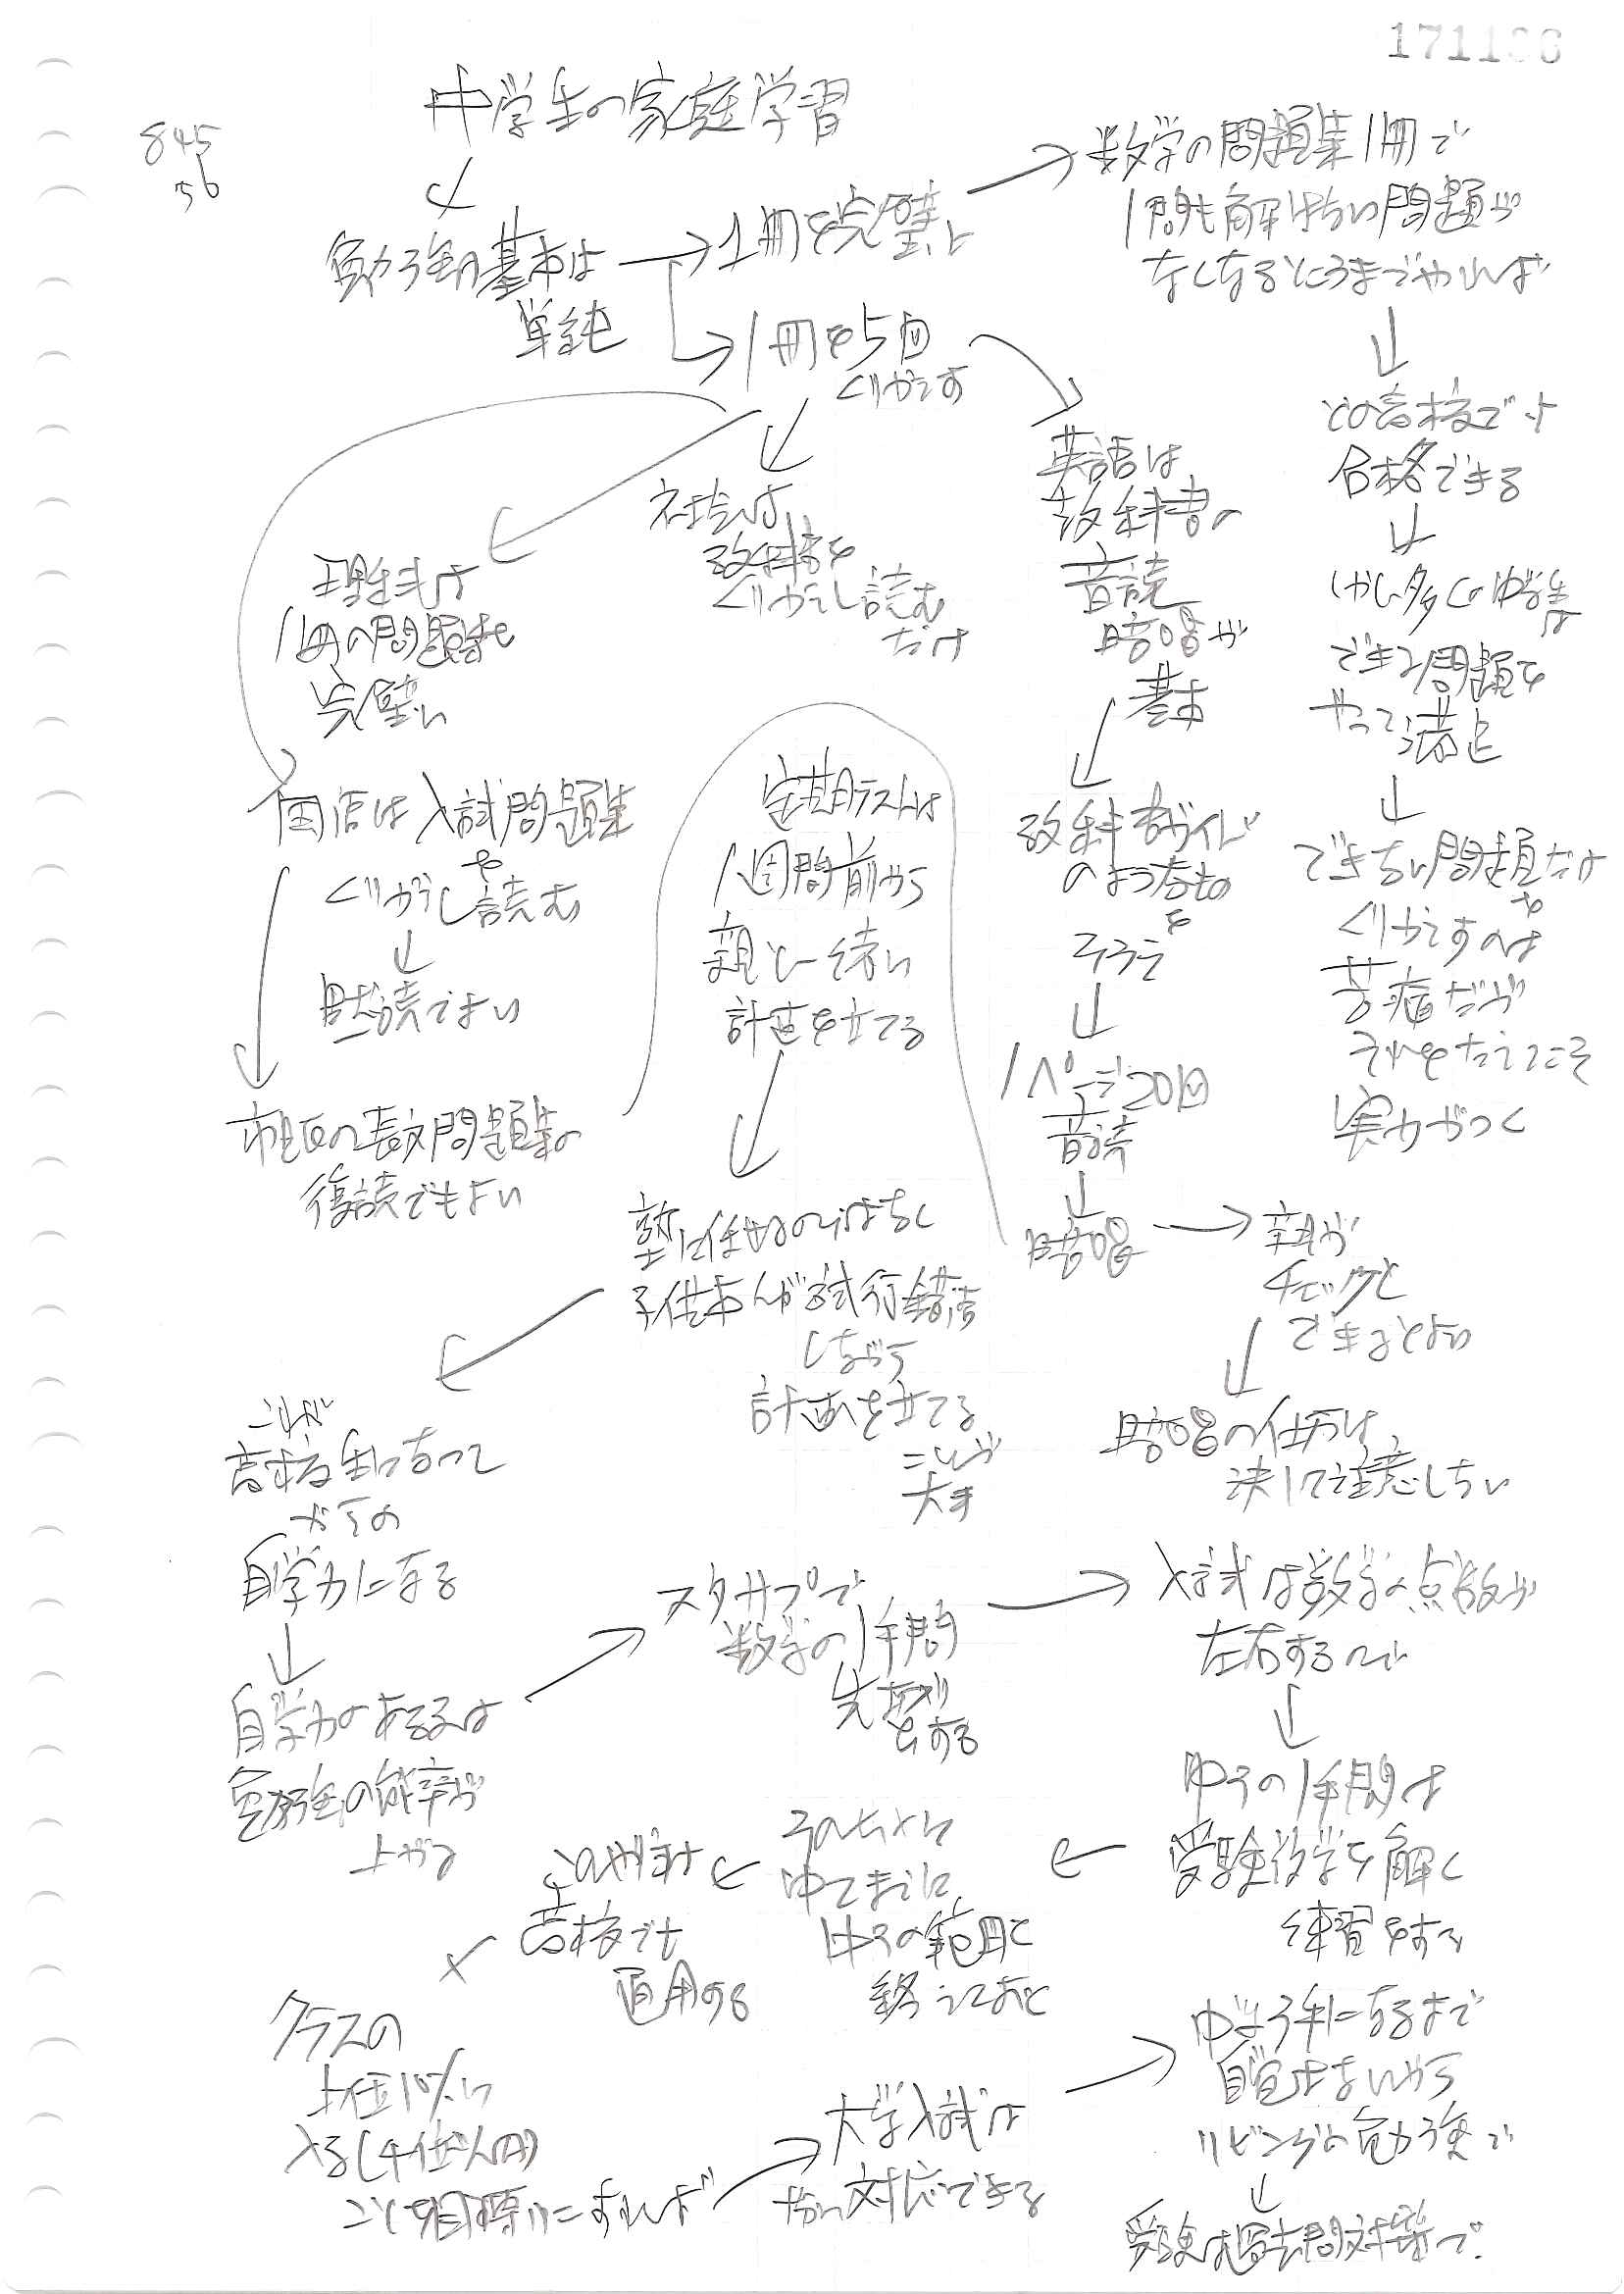 845
56
中学生の家庭学習
勉強の基本は
単純
1冊を完璧に
数学の問題集1冊で
1問も解けない問題が
なくなるところまでやれば
どの高校でも
合格できる
しかし多くの中学生は
できる問題を
やって満足
できない問題だけ
を
くりかえすのは
苦痛だが
それをたえてこそ
実力がつく
1冊を5回
くりかえす
英語は
教科書の
音読
暗唱が
基本
教科書ガイド
のようなもの
を
そろえ
1ページ20回
音読
暗唱
親が
チェックと
できるとよい
暗唱の仕方は
決して注意しない
社会は
教科書を
くりかえし読む
だけ
理科は
1冊の問題集を
完璧に
国語は入試問題集
を
くりかえし読む
黙読でよい
市販の長文問題集の
復読でもよい
定期テストは
1週間前から
親と一緒に
計画を立てる
塾に任せるのではなく
子供本人が試行錯誤
しながら
計画を立てる
これが
大事
これが
高校生になって
からの
自学力になる
自学力のある子は
勉強の能率が
上がる
スタサプで
数学の1年間
先取り
をする
入試は数学の点数が
左右するので
中3の1年間は
受験数学を解く
練習をする
そのために
中2までに
中3の範囲を
終えておく
このやり方は
高校でも
通用する
クラスの
上位10%に
入る(4位以内)
ことを目標にすれば
大学入試は
対応できる
中学3年になるまで
自覚はないから
リビングの勉強で
受験は過去問対策で.